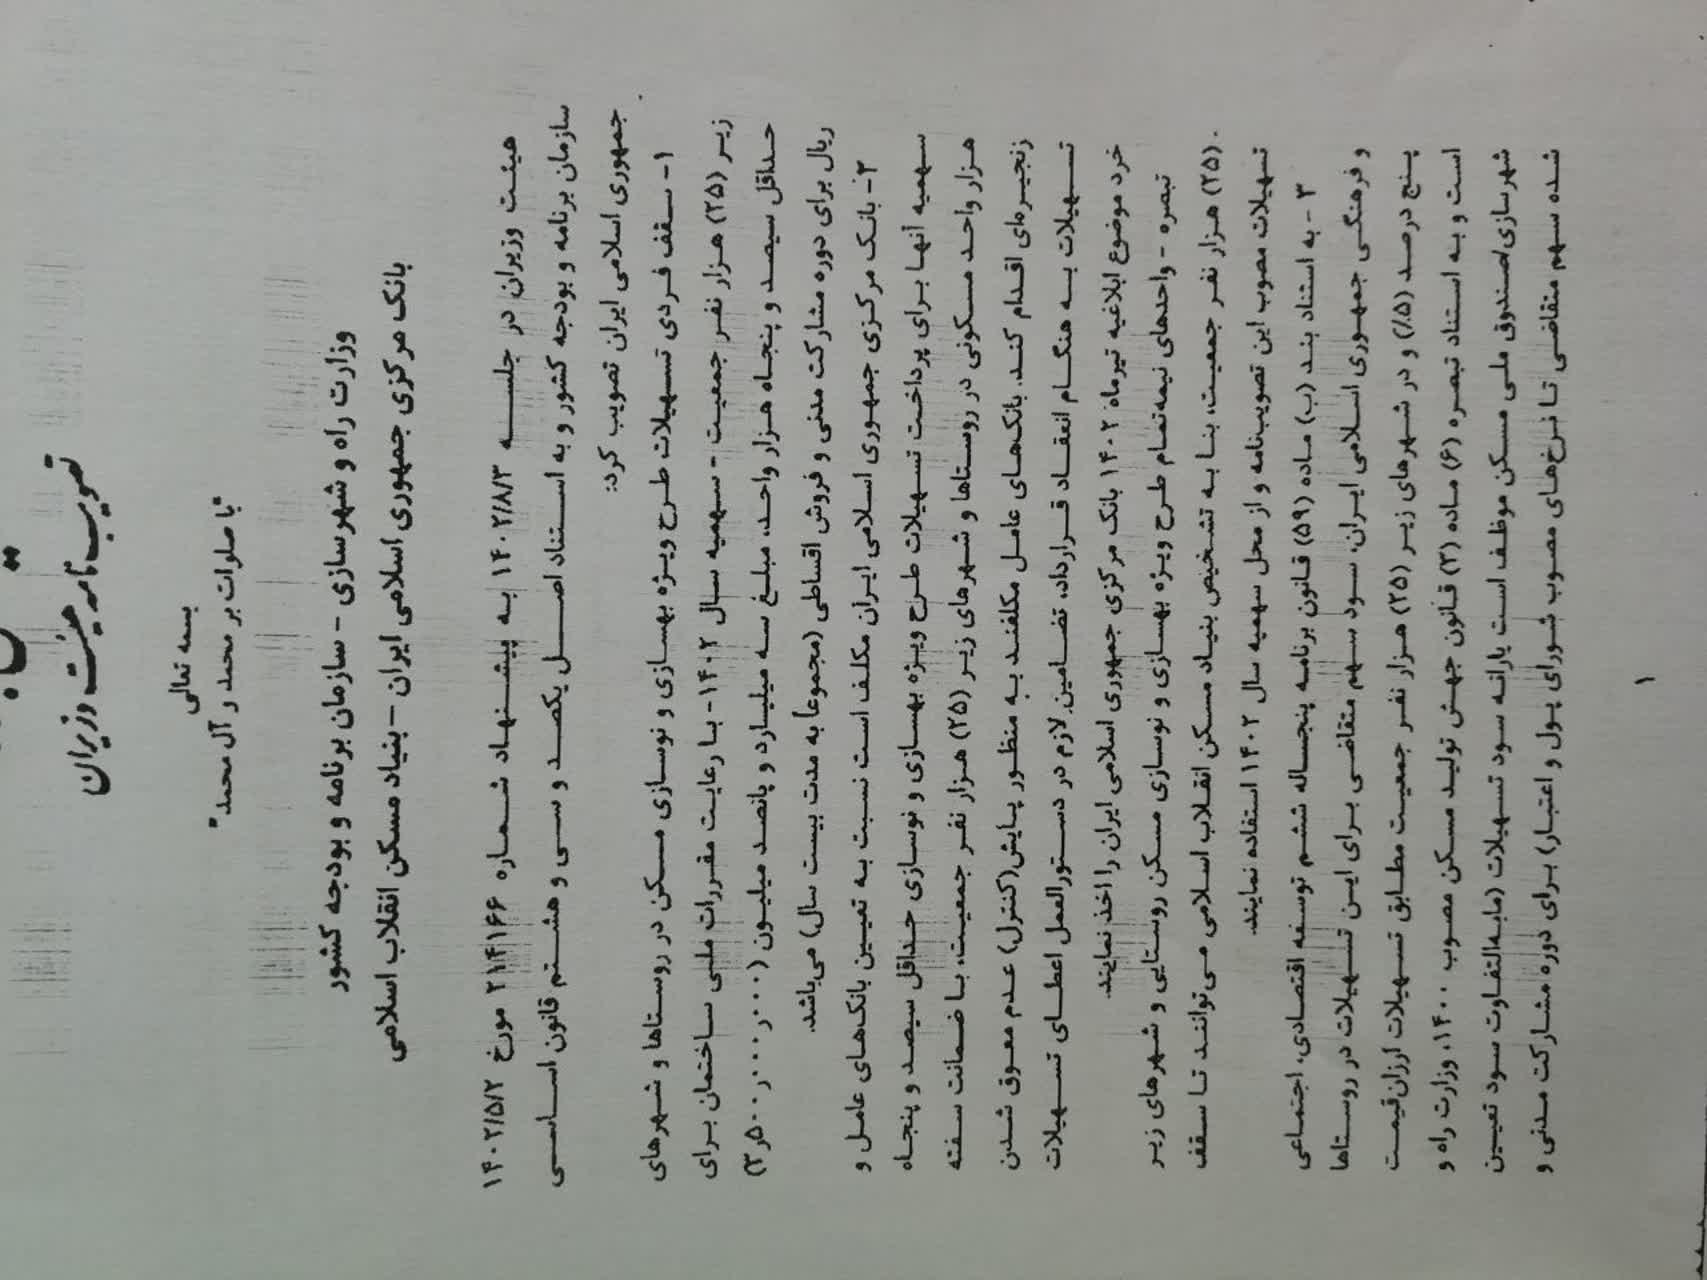 تصویب نامه هیئت وزیران
بسمه تعالی
"با صلوات بر محمد و آل محمد"
وزارت راه و شهرسازی - سازمان برنامه و بودجه کشور
بانک مرکزی جمهوری اسلامی ایران - بنیاد مسکن انقلاب اسلامی
هیئت وزیران در جلسه ۱۴۰۲/۸/۳ به پیشنهاد شماره ۲۱۴۱۶۶ مورخ ۱۴۰۲/۵/۲
سازمان برنامه و بودجه کشور و به استناد اصل یکصد و سی و هشتم قانون اساسی
جمهوری اسلامی ایران تصویب کرد:
۱- سقف فردی تسهیلات طرح ویژه بهسازی و نوسازی مسکن در روستاها و شهرهای
زیر (۲۵) هزار نفر جمعیت - سهمیه سال ۱۴۰۲- با رعایت مقررات ملی ساختمان برای
حداقل سیصد و پنجاه هزار واحد، مبلغ سه میلیارد و پانصد میلیون (۳٫۵۰۰٫۰۰۰٫۰۰۰)
ریال برای دوره مشارکت مدنی و فروش اقساطی (مجموعاً به مدت بیست سال) می‌باشد.
۲- بانک مرکزی جمهوری اسلامی ایران مکلف است نسبت به تعیین بانک‌های عامل و
سهمیه آنها برای پرداخت تسهیلات طرح ویژه بهسازی و نوسازی حداقل سیصد و پنجاه
هزار واحد مسکونی در روستاها و شهرهای زیر (۲۵) هزار نفر جمعیت، با ضمانت سفته
زنجیره‌ای اقدام کند. بانک‌های عامل مکلفند به منظور پایش(کنترل) عدم معوق شدن
تسهیلات به هنگام انعقاد قرارداد، تضامین لازم در دستورالعمل اعطای تسهیلات
خرد موضوع ابلاغیه تیرماه ۱۴۰۲ بانک مرکزی جمهوری اسلامی ایران را اخذ نمایند.
تبصره - واحدهای نیمه‌تمام طرح ویژه بهسازی و نوسازی مسکن روستایی و شهرهای زیر
(۲۵) هزار نفر جمعیت، بنا به تشخیص بنیاد مسکن انقلاب اسلامی می‌توانند تا سقف
تسهیلات مصوب این تصویب‌نامه و از محل سهمیه سال ۱۴۰۲ استفاده نمایند.
۳- به استناد بند (ب) ماده (۵۹) قانون برنامه پنجساله ششم توسعه اقتصادی، اجتماعی
و فرهنگی جمهوری اسلامی ایران، سود سهم متقاضی برای این تسهیلات در روستاها
پنج درصد (۵٪) و در شهرهای زیر (۲۵) هزار نفر جمعیت مطابق تسهیلات ارزان‌قیمت
است و به استناد تبصره (۶) ماده (۳) قانون جهش تولید مسکن مصوب ۱۴۰۰، وزارت راه و
شهرسازی/صندوق ملی مسکن موظف است یارانه سود تسهیلات (مابه‌التفاوت سود تعیین
شده سهم متقاضی تا نرخ‌های مصوب شورای پول و اعتبار) برای دوره مشارکت مدنی و
۱